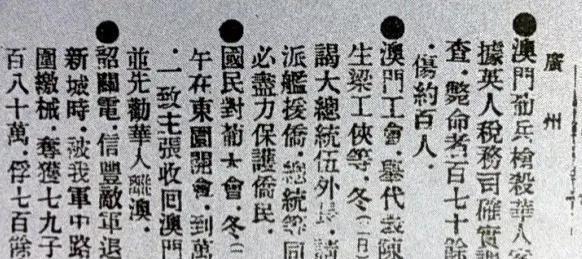 廣州
●澳門葡兵槍殺華人案
據英人稅務司確實調
查.斃命者百七十餘
.傷約百人.
●澳門工會.舉代表陳
生梁工俠等.冬(二日)
謁大總統伍外長.請
派艦援僑.總統等同
必盡力保護僑民.
●國民對葡大會.冬(二
午在東園開會.到萬
.一致主張收回澳門
並先勸華人離澳.
●韶關電.信豐敵軍退
新城時.被我軍中路
圍繳械.奪獲七九子
百八十萬.俘七百餘